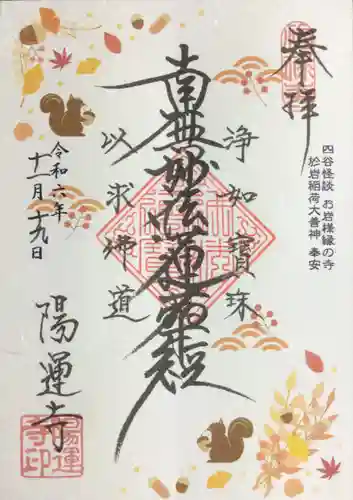 奉拝
四谷怪談 お岩様縁の寺
於岩稲荷大善神 奉安
浄如寶珠
南無妙法蓮華経
以求佛道
令和六年
十一月十九日
陽運寺
陽運
寺印